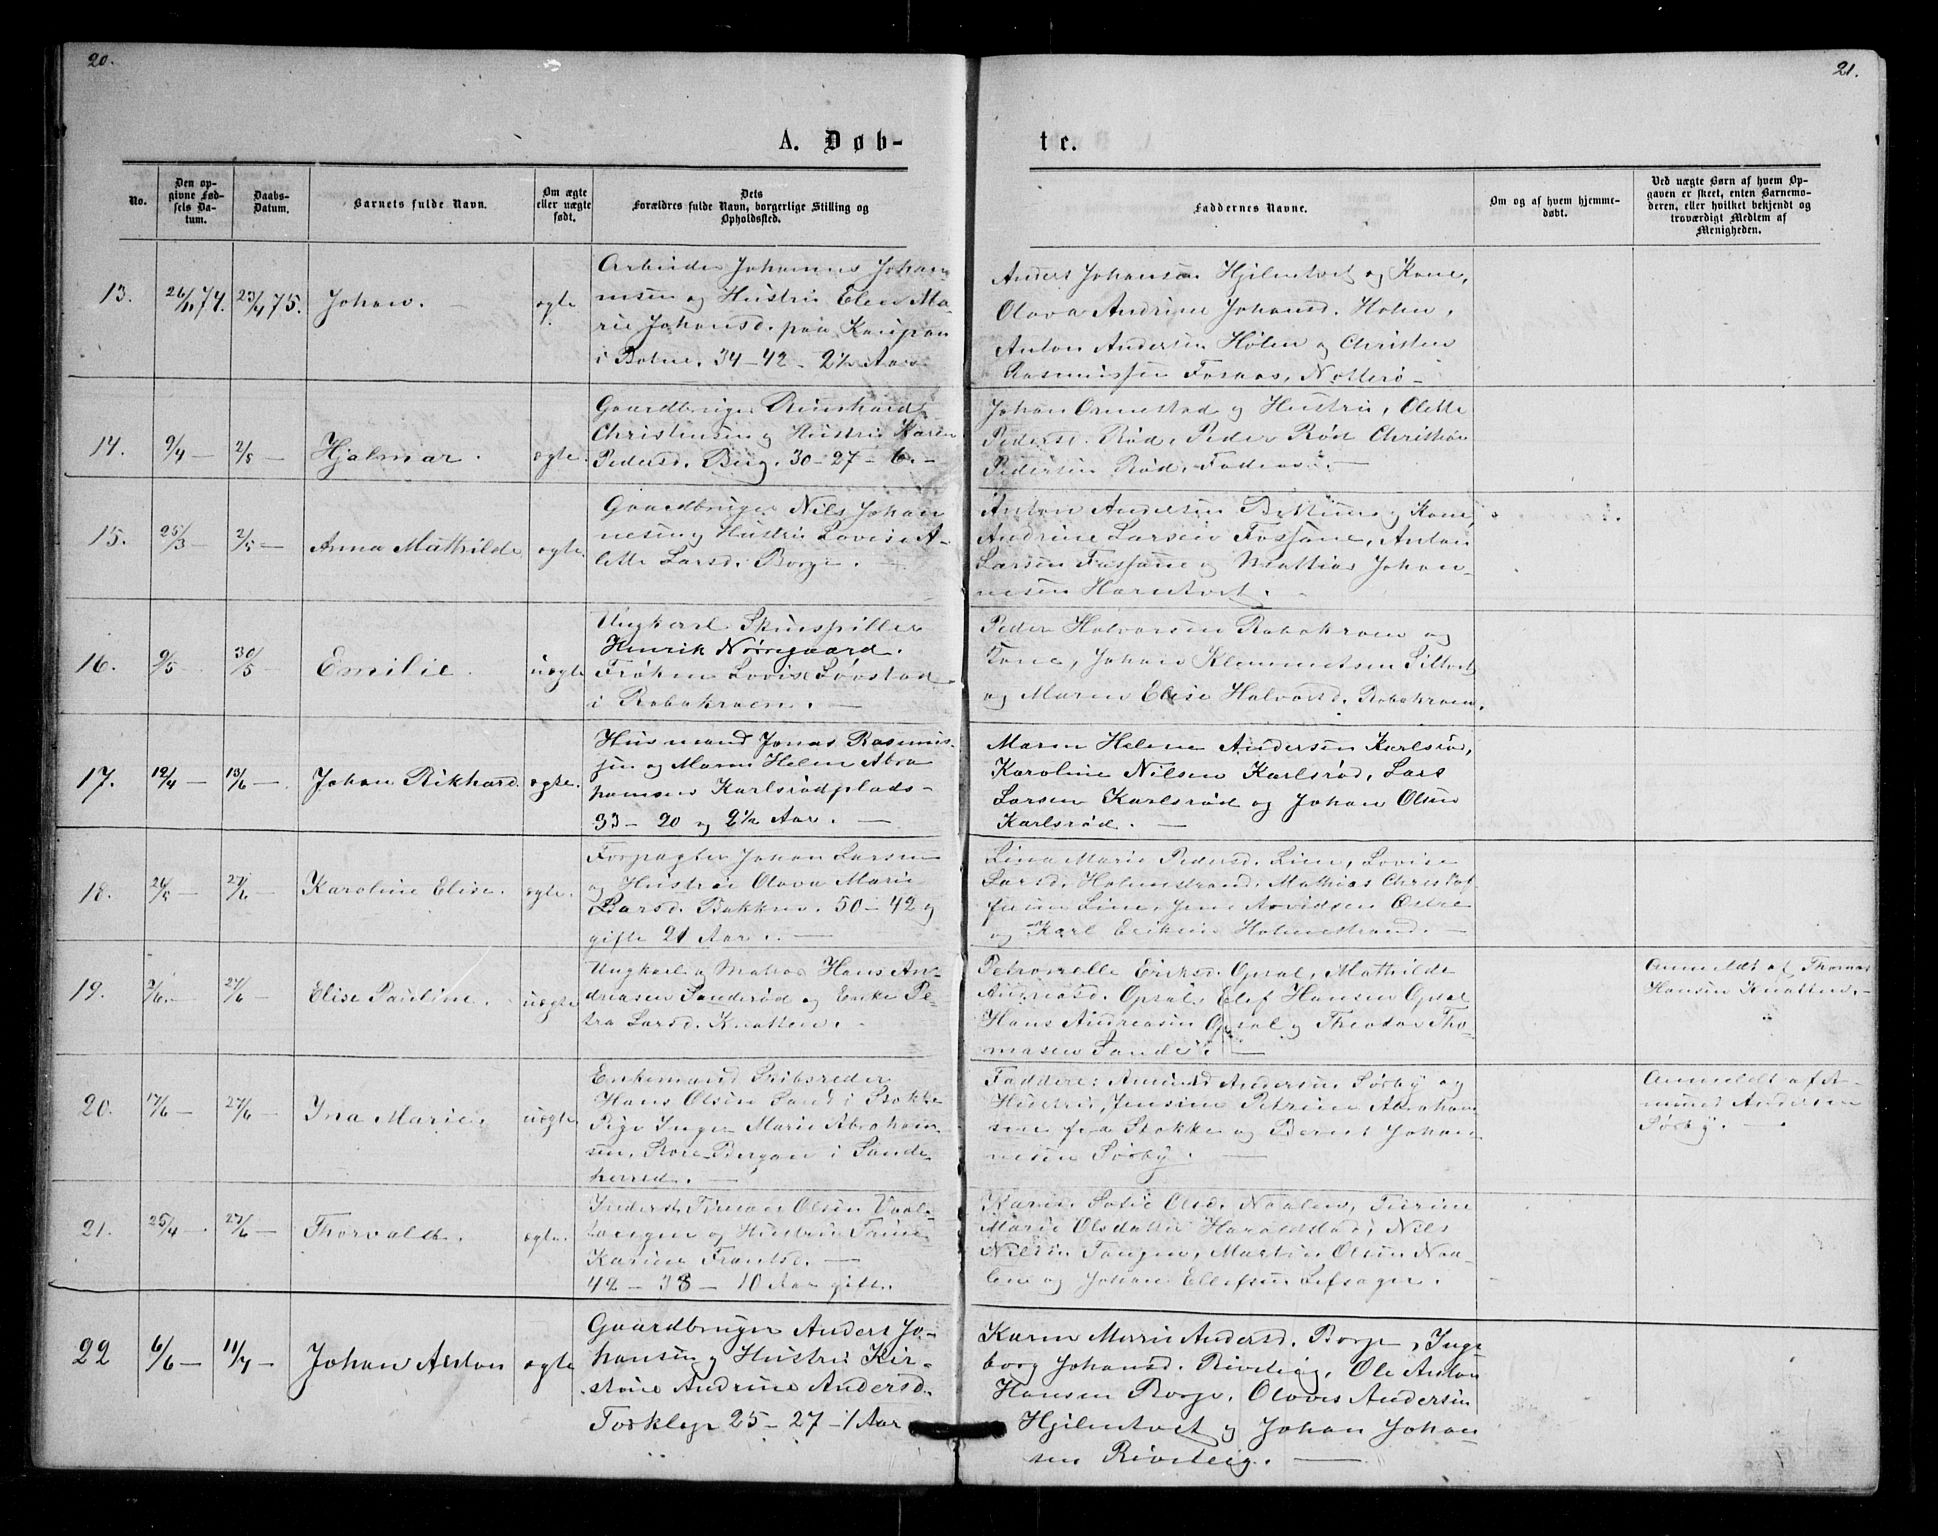 20.
21.
A. Døb-
te.
No.
Den op-
givne Fød-
sels Da-
tum.
Daabs-
Datum.
Barnets fulde Navn.
Om ægte
eller uægte
født.
Dets
Forældres fulde Navn, borgerlige Stilling og
Opholdssted.
Faddernes Navne.
Om og af hvem hjemme-
døbt.
Ved uægte Børn af hvem Op-
gaven er skeet, enten Barnemo-
deren, eller hvilket bekjendt og
troværdigt Medlem af
Menigheden.
13. 74. 23/4 75. Johan. ægte
Arbeider Johannes Johan-
nesen og Hustru Elen Ma-
rie Johansd. paa Kaupan
i Botne. 34-42- 2½ Aar
Anders Johansen Hjelmtvet og Kone,
Olava Andrine Johansd. Holen,
Anton Andersen Holen og Christen
Rasmussen Fosaas, Nøtterø-
14. 9/4 - 2/5 - Hjalmar. ægte.
Gaardbruger Reinhard
Christensen og Hustru Karen
Pedersd. Berg. 30-27-6.-
Johan Ormestad og Hustru, Olette
Pedersd. Rød, Peder Rød Christian
Pedersen Rød, Faderen.-
15. 25/3 2/5 - Anna Mathilde ægte.
Gaardbruger Nils Johan
nesen og Hustru Lovise A-
lette Larsd. Borge.
Anton Andersen og Kone,
Andrine Larsen Fossane, Anton
Larsen Fossane og Mathias Johan-
nesen Hørntvet.
16. 9/5 - 30/5 Emilie. uægte
Ungkarl Skuespiller
Henrik Nørregaard.
Frøken Lovise Løvstad
i Rabakroen. -
Peder Halvorsen Rabakroen og
Kone, Johan Klemmetsen Siltvet
og Maren Elise Halvorsd. Rabakroen.
17. 12/4 - 13/6 - Johan Rikhard. ægte.
Husmand Jonas Rasmus-
sen og Maren Helene Abra
hamsen Karlsrødplads-
33 - 20 og 2½ Aar. -
Maren Helene Andersen Karlsrød,
Karoline Nilsen Karlsrød, Lars
Larsen Karlsrød og Johan Olsen
Karlsrød. -
18. 26/5 - 27/6 - Karoline Elise. ægte.
Forpagter Johan Larsen
og Hustru Olava Marie
Larsd. Bakken. 50-42 og
gifte 21 Aar. -
Lina Marie Pedersd. Line, Lovise
Larsd. Holmestrand, Mathias Christof-
fersen Line, Jens Arvidsen Østre
og Karl Eriksen Holmestrand. -
19. 2/6 - 27/6 - Elise Pauline. uægte
Ungkarl og Matros Hans An-
dreasen Sanderød og Enke Pe-
tra Larsd. Knatten. -
Petronelle Eriksd. Opsal, Mathilde
Andreasd. Opsal, Elef Hansen Opsal
Hans Andreasen Opsal og Theodor Tho-
masen Sande. -
Anmeldt af Thomas
Hansen Knatten. -
20. 17/6 - 27/6 - Ina Marie. uægte
Enkemand Skibsreder
Hans Olsen Sand i Stokke
Pige Inger Marie Abraham
sen, Bergan i Sande-
herred. -
Faddere: Amund Andersen Sørby og
Hustru, Jensine Petrine Abraham
sen fra Stokke og Bernt Johan-
nesen Sørby. -
Anmeldt af A-
mund Andersen
Sørby. -
21. 25/4 - 27/6 - Thorvald. ægte.
Olsen Vaal-
tangen og Hustru Trine
Karine Frantsd. -
42 - 38 - 10 Aar gifte.
Karen Sofie Olsd. Naalen,
Marie Olsdatter Haraldstad, Nils
Nilsen Tangen, Martin Olsen Naa-
lene og Johan Ellefsen Lefsager.
22 6/6 - 11/7 - Johan Anton ægte
Gaardbruger Anders Jo-
hansen og Hustru Kir-
stine Andrine Andersd.
Torklep 25-27-1 Aar
Karen Marie Andersd. Borge, Inge-
borg Johansd. Riveteig, Ole Anton
Hansen Borge, Olaves Andersen
Hjelmtvet og Johan Johan-
sen Riveteig. -